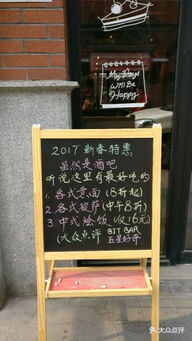 May Days
Will Be
Happy
2017 新春特惠
虽然是酒吧
听说这里有最好吃的
1. 各式意面 (8折起)
2. 各式披萨 (中午8折)
3. 中式烩饭 (仅16元)
(大众点评 BIT BAR
五星好评
大众点评